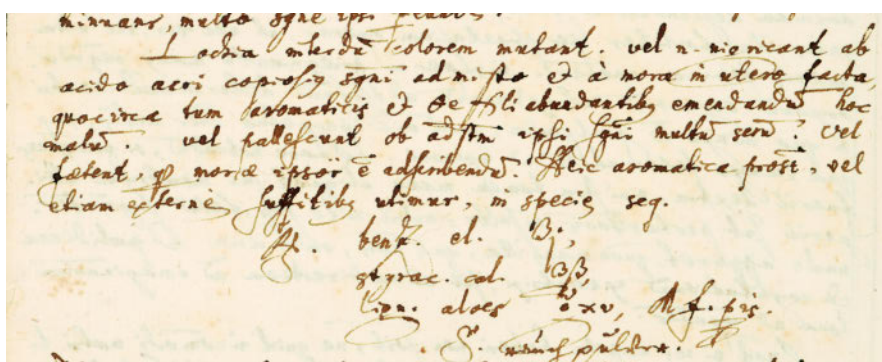 minuant, multo sgne ipsi
Lochia interdū colorem mutant. vel n. nigricant ab
acido acri copiosiq sgni admisto & à mora in utero facta,
quocirca tum aromaticis & ole sili abundantibq emendandū hoc
malū vel pallescunt ob admstm ipsi sgni multū serū: vel
fœtent, qd moræ ipsor ē adscribendū. Heic aromatica prost, vel
etiam externè suffitibq utimur, in specie seq.
℞. benz. el. ʒj,
styrac. cal. ʒβ,
lign. aloes xv, M f. pis.
S. pulver.